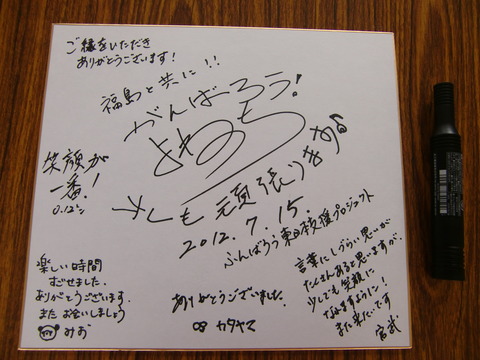 ご縁をいただき
ありがとうございます!
福島と共に!!
がんばろう!
笑顔が
一番!
も頑張り
2012.7.15.
ふんばろう東日本支援プロジェクト
楽しい時間
すごせました。
ありがとうございます。
また お会いしましょう
みお
ありがとうございました。
カタヤマ
言葉にしづらい思いが
たくさんあると思いますが、
少しでも笑顔に
なりますように!
また来たいです
宮武